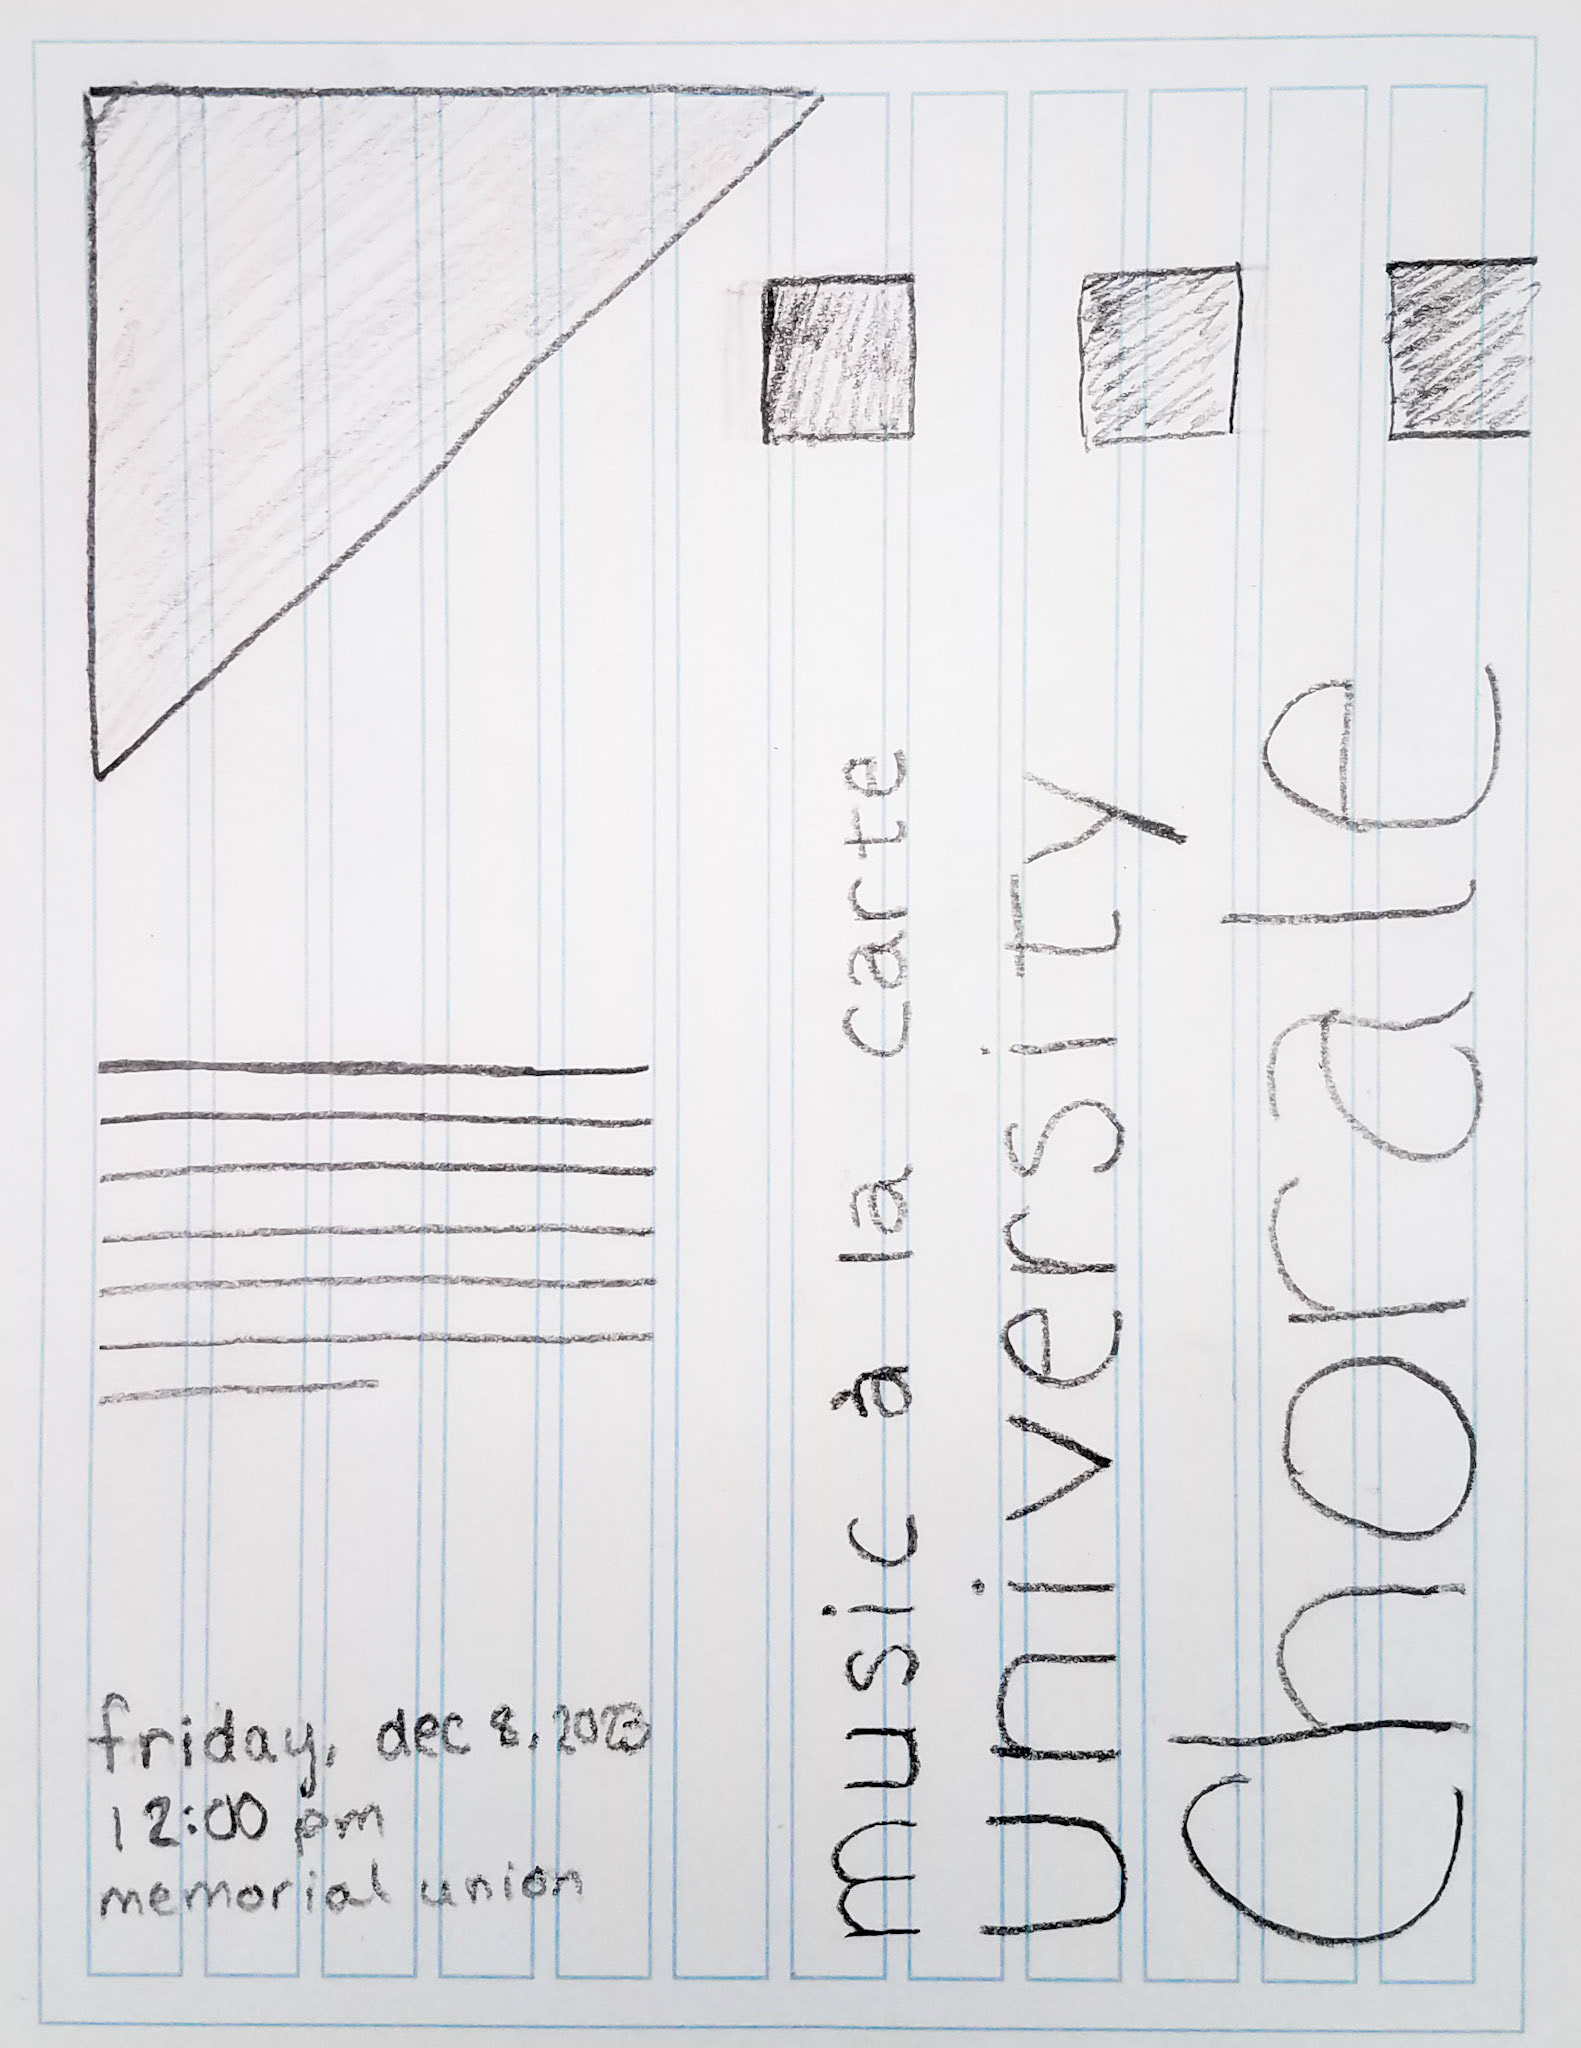 music à la carte
university
chorale
friday, dec 8, 2023
12:00 pm
memorial union